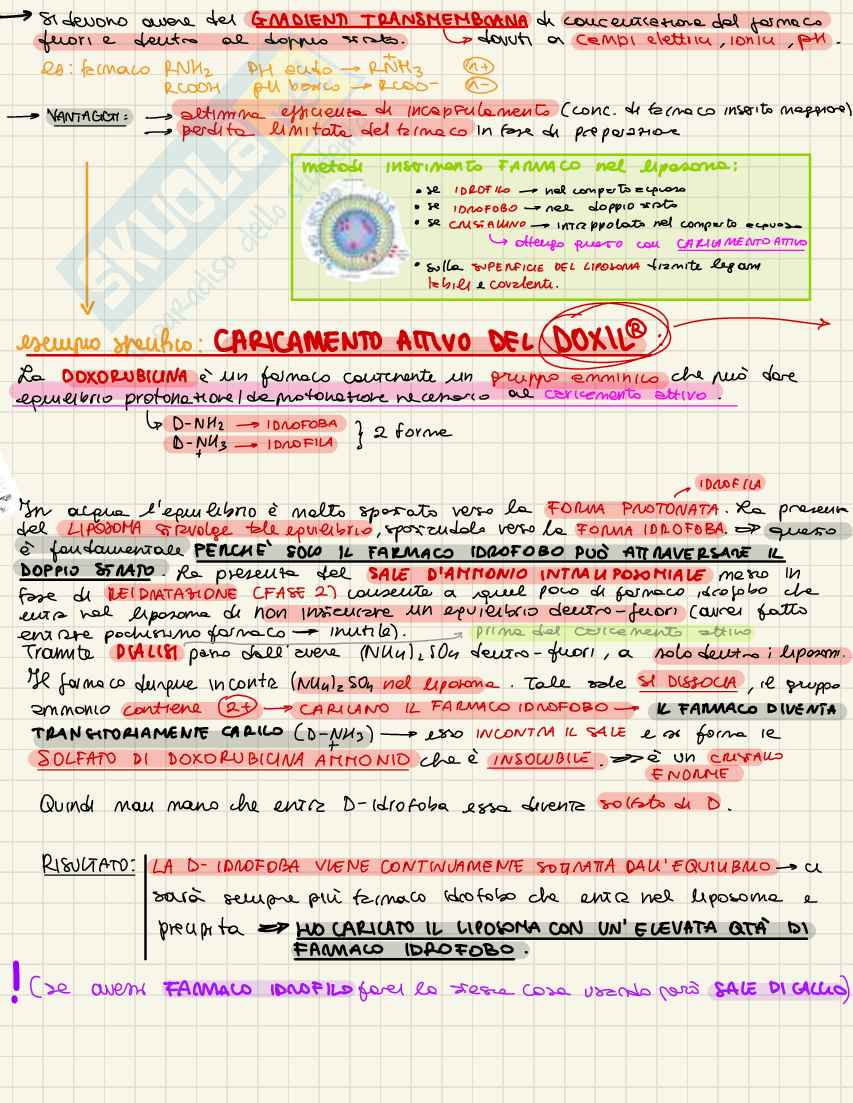 → Si devono avere dei GRADIENTI TRANSMEMBRANA di concentrazione del farmaco
fuori e dentro al doppio strato. ↳ dovuti a campi elettrici, ionici, pH.
Es: farmaco RNH2 pH acido → RNH3 + (n+)
RCOOH pH basico → RCOO- (n-)
→ VANTAGGI: → altissima efficienza di incapsulamento (conc. di farmaco inserito maggiore)
→ perdita limitata del farmaco in fase di preparazione
metodi inserimento FARMACO nel liposoma:
• se IDROFILO → nel comparto acquoso
• se IDROFOBO → nel doppio strato
• se CRISTALLINO → intrappolato nel comparto acquoso
↳ ottengo questo con CARICAMENTO ATTIVO
• sulla SUPERFICIE DEL LIPOSOMA tramite legami
labili e covalenti.
SKUOLA
paradiso dello studente
esempio specifico: CARICAMENTO ATTIVO DEL DOXIL® :
La DOXORUBICINA è un farmaco contenente un gruppo amminico che può dare
equilibrio protonazione/deprotonazione necessario al caricamento attivo.
↳ D-NH2 → IDROFOBA
D-NH3 + → IDROFILA } 2 forme
IDROFILA
In acqua l'equilibrio è molto spostato verso la FORMA PROTONATA. La presenza
del LIPOSOMA stravolge tale equilibrio, spostandolo verso la FORMA IDROFOBA. ⇒ questo
è fondamentale PERCHÈ SOLO IL FARMACO IDROFOBO PUÒ ATTRAVERSARE IL
DOPPIO STRATO. La presenza del SALE D'AMMONIO INTRALIPOSOMIALE messo in
fase di REIDRATAZIONE (FASE 2) consente a quel poco di farmaco idrofobo che
entra nel liposoma di non instaurare un equilibrio dentro-fuori (avrei fatto
entrare pochissimo farmaco → inutile). prima del caricamento attivo
Tramite DIALISI passo dall'avere (NH4)2SO4 dentro-fuori, a solo dentro i liposomi.
Il farmaco dunque incontra (NH4)2SO4 nel liposoma. Tale sale SI DISSOCIA, il gruppo
ammonio contiene 2+ → CARICANO IL FARMACO IDROFOBO → IL FARMACO DIVENTA
TRANSITORIAMENTE CARICO (D-NH3 +) → esso INCONTRA IL SALE e si forma il
SOLFATO DI DOXORUBICINA AMMONIO che è INSOLUBILE. ⇒ è un CRISTALLO
ENORME
Quindi man mano che entra D-idrofoba essa diventa solfato di D.
RISULTATO: LA D-IDROFOBA VIENE CONTINUAMENTE SOTTRATTA DALL'EQUILIBRIO → ci
sarà sempre più farmaco idrofobo che entra nel liposoma e
precipita ⇒ HO CARICATO IL LIPOSOMA CON UN'ELEVATA QTÀ DI
FARMACO IDROFOBO.
! (se avessi FARMACO IDROFILO farei la stessa cosa usando però SALE DI CALCIO)